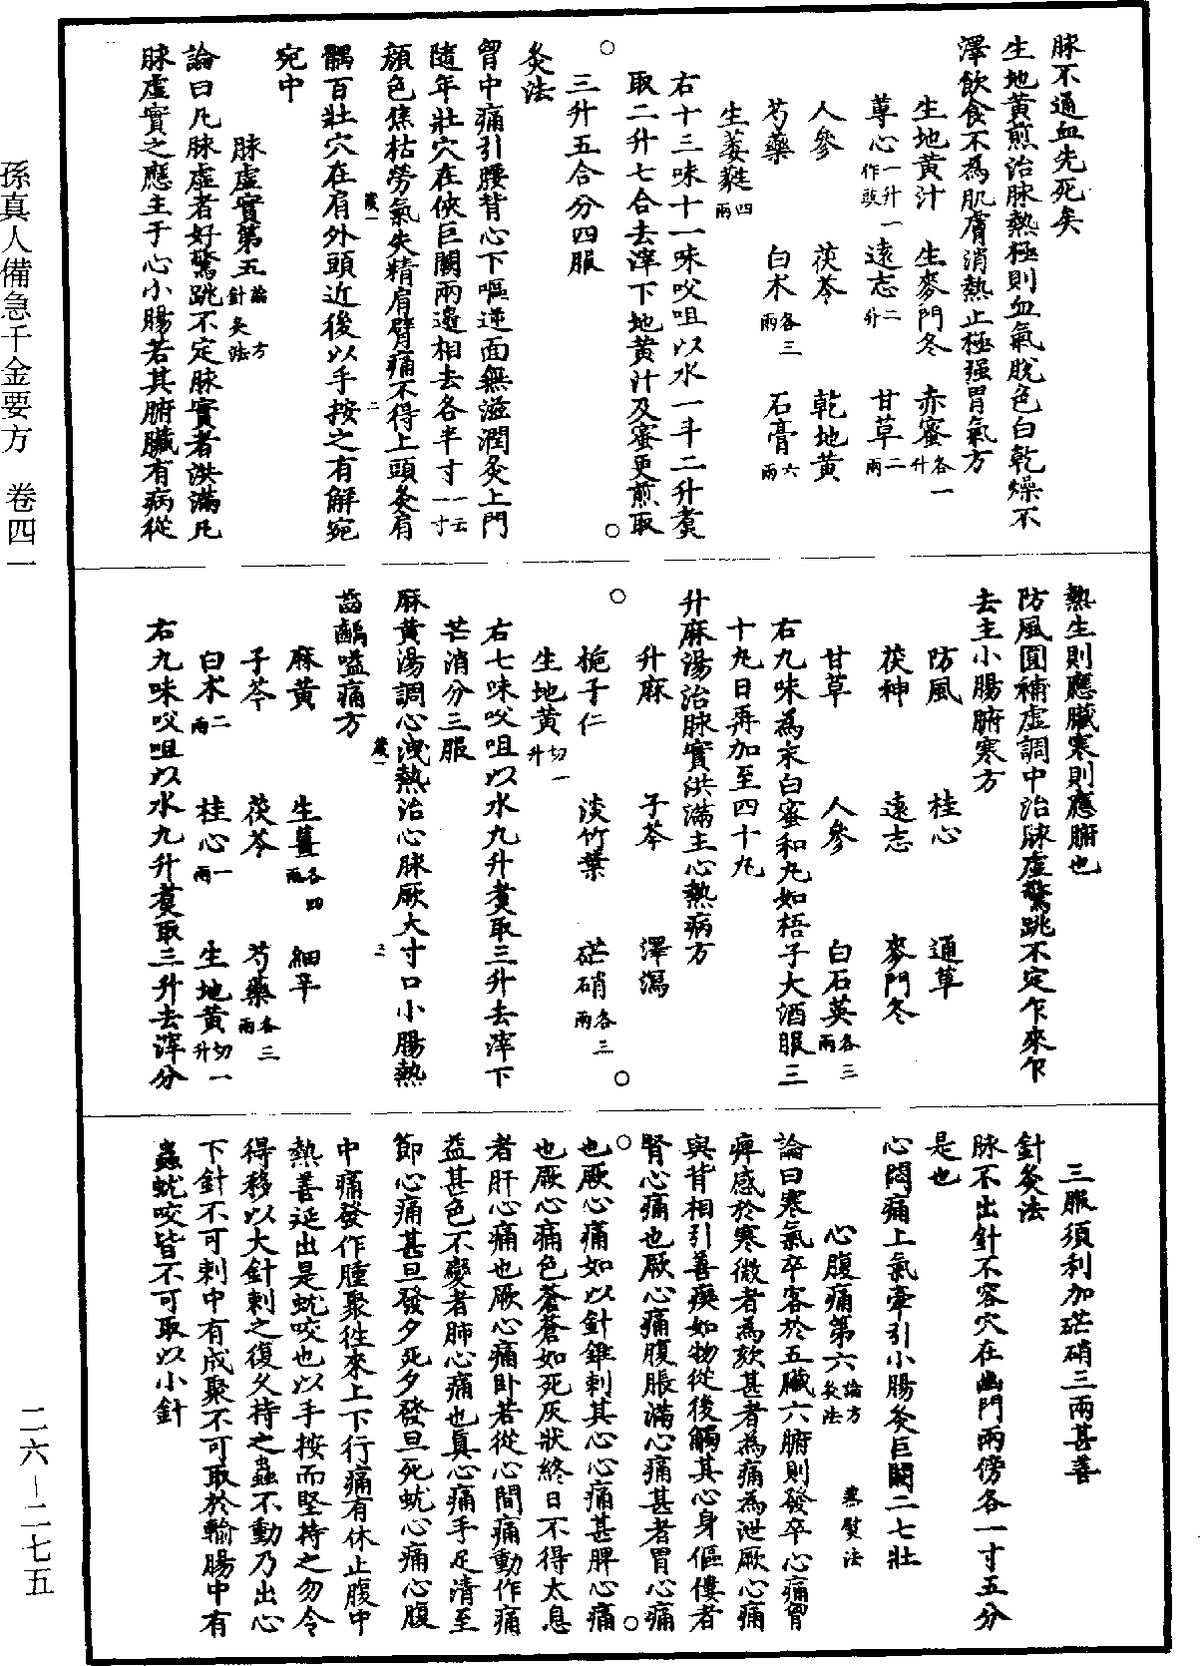 脉不通血先死矣
生地黃煎治脉熱極則血氣脫色白乾燥不
澤飲食不為肌膚消熱止極强胃氣方
生地黃汁 生麥門冬 赤蜜各一升
蓴心一升一作豉 遠志二升 甘草二兩
人參 茯苓 乾地黃
芍藥 白术各三兩 石膏六兩
生萎蕤四兩
右十三味十一味㕮咀以水一斗二升煑
取二升七合去滓下地黃汁及蜜更煎取
三升五合分四服
灸法
胷中痛引腰背心下嘔逆面無滋潤灸上門
隨年壯穴在俠巨闕兩邊相去各半寸一云一寸
顏色焦枯勞氣失精肩臂痛不得上頭灸肩
髃百壯穴在肩外頭近後以手按之有解宛
宛中
脉虛實第五論方針灸法
論曰凡脉虛者好驚跳不定脉實者洪滿凡
脉虛實之應主于心小腸若其腑臟有病從
熱生則應臟寒則應腑也
防風圓補虛調中治脉虛驚跳不定乍來乍
去主小腸腑寒方
防風 桂心 通草
茯神 遠志 麥門冬
甘草 人參 白石英各三兩
右九味為末白蜜和丸如梧子大酒服三
十丸日再加至四十丸
升麻湯治脉實洪滿主心熱病方
升麻 子芩 澤瀉
梔子仁 淡竹葉 芒硝各三兩
生地黃切一升
右七味㕮咀以水九升煑取三升去滓下
芒消分三服
麻黃湯調心洩熱治心脉厥大寸口小腸熱
齒齲嗌痛方
麻黃 生薑各四兩 細辛
子芩 茯苓 芍藥各三兩
白术二兩 桂心一兩 生地黃切一升
右九味㕮咀以水九升煑取三升去滓分
三服須利加芒硝三兩甚善
針灸法
脉不出針不容穴在幽門兩傍各一寸五分
是也
心悶痛上氣牽引小腸灸巨闕二七壯
心腹痛第六論方灸法 熨法
論曰寒氣卒客於五臟六腑則發卒心痛胷
痺感於寒微者為欬甚者為痛為泄厥心痛
與背相引善瘈如物從後觸其心身傴僂者
腎心痛也厥心痛腹脹滿心痛甚者胃心痛
也厥心痛如以針錐刺其心心痛甚脾心痛
也厥心痛色蒼蒼如死灰狀終日不得太息
者肝心痛也厥心痛卧若從心間痛動作痛
益甚色不變者肺心痛也真心痛手足清至
節心痛甚旦發夕死夕發旦死蚘心痛心腹
中痛發作腫聚徃來上下行痛有休止腹中
熱善涎出是蚘咬也以手按而堅持之勿令
得移以大針刺之復久持之蟲不動乃出心
下針不可刺中有成聚不可取於輸腸中有
蟲蚘咬皆不可取以小針
孫真人備急千金要方 卷四一
二六－二七五